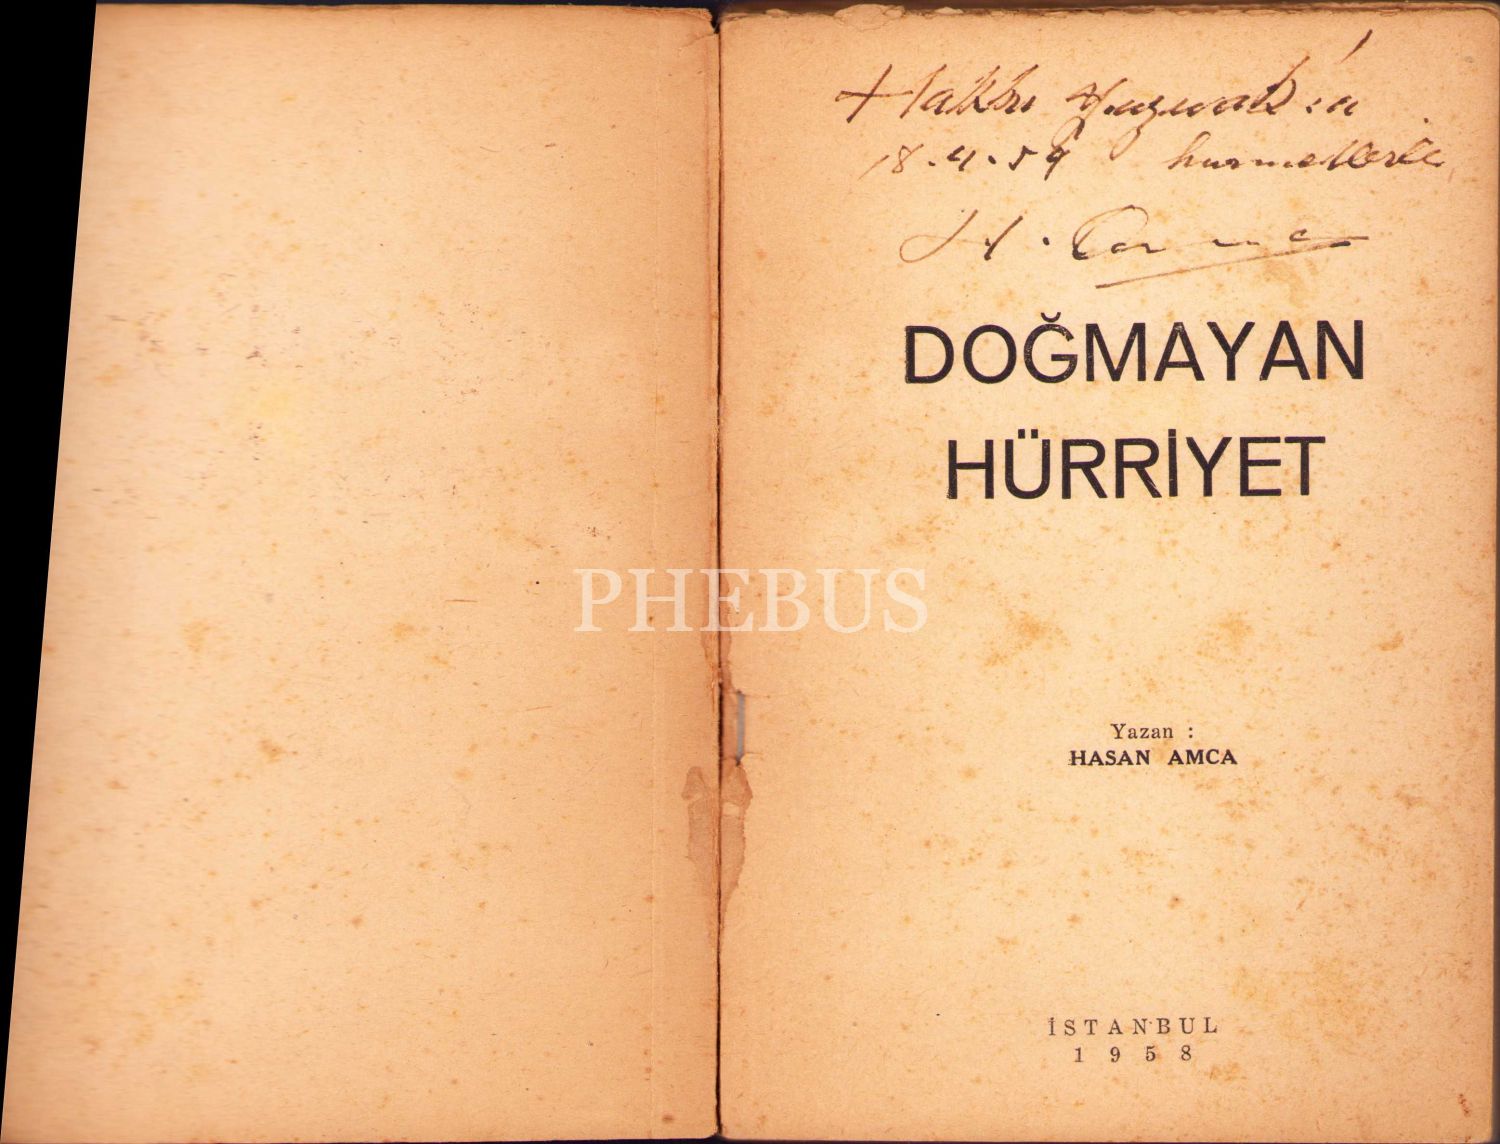 Hakkı
18.4.59 hürmetlerle
H. Amca
DOĞMAYAN
HÜRRİYET
PHEBUS
Yazan :
HASAN AMCA
İSTANBUL
1958